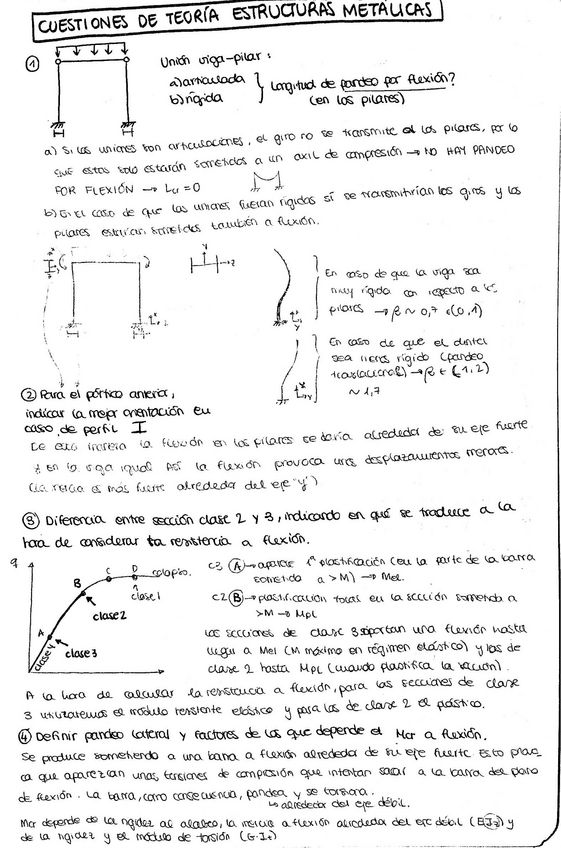 CUESTIONES DE TEORÍA ESTRUCTURAS METÁLICAS
① Unión viga-pilar:
a) articulada
b) rígida
Longitud de pandeo por flexión?
(en los pilares)
a) Si las uniones son articulaciones, el giro no se transmite a los pilares, por lo
que estos solo estarán sometidos a un axil de compresión → NO HAY PANDEO
POR FLEXIÓN → Lcr = 0
b) En el caso de que las uniones fueran rígidas sí se transmitirían los giros y los
pilares estarían sometidos también a flexión.
En caso de que la viga sea
muy rígida con respecto a los
pilares → β ~ 0,7 ∈(0,1)
En caso de que el dintel
sea menos rígido (pandeo
traslacional) → β ∈ (1,2)
~ 1,7
② Para el pórtico anterior,
indicar la mejor orientación en
caso de perfil I
De esta manera la flexión en los pilares se daría alrededor de su eje fuerte
y en la viga igual. Así la flexión provoca unos desplazamientos menores.
(La inercia es más fuerte alrededor del eje "y")
③ Diferencia entre sección clase 2 y 3, indicando en qué se traduce a la
hora de considerar la resistencia a flexión.
q
A
B
C
D
colapso.
clase 1
clase 2
clase 3
clase 4
C3 Ⓐ → aparece 1ª plastificación (en la parte de la barra
sometida a >M) → Mel.
C2 Ⓑ → plastificación total en la sección sometida a
>M → Mpl
Las secciones de clase 3 soportan una flexión hasta
llegar a Mel (M máximo en régimen elástico) y las de
clase 2 hasta Mpl (cuando plastifica la sección).
A la hora de calcular la resistencia a flexión, para las secciones de clase
3 utilizaremos el módulo resistente elástico y para los de clase 2 el plástico.
④ Definir pandeo lateral y factores de los que depende el Mcr a flexión.
Se produce sometiendo a una barra a flexión alrededor de su eje fuerte. Esto provo
ca que aparezcan unas tensiones de compresión que intentan sacar a la barra del plano
de flexión. La barra, como consecuencia, pandea y se torsiona.
↳ alrededor del eje débil.
Mcr depende de la rigidez al alabeo, la inercia a flexión alrededor del eje débil (E·Iz) y
de la rigidez y el módulo de torsión (G·It)